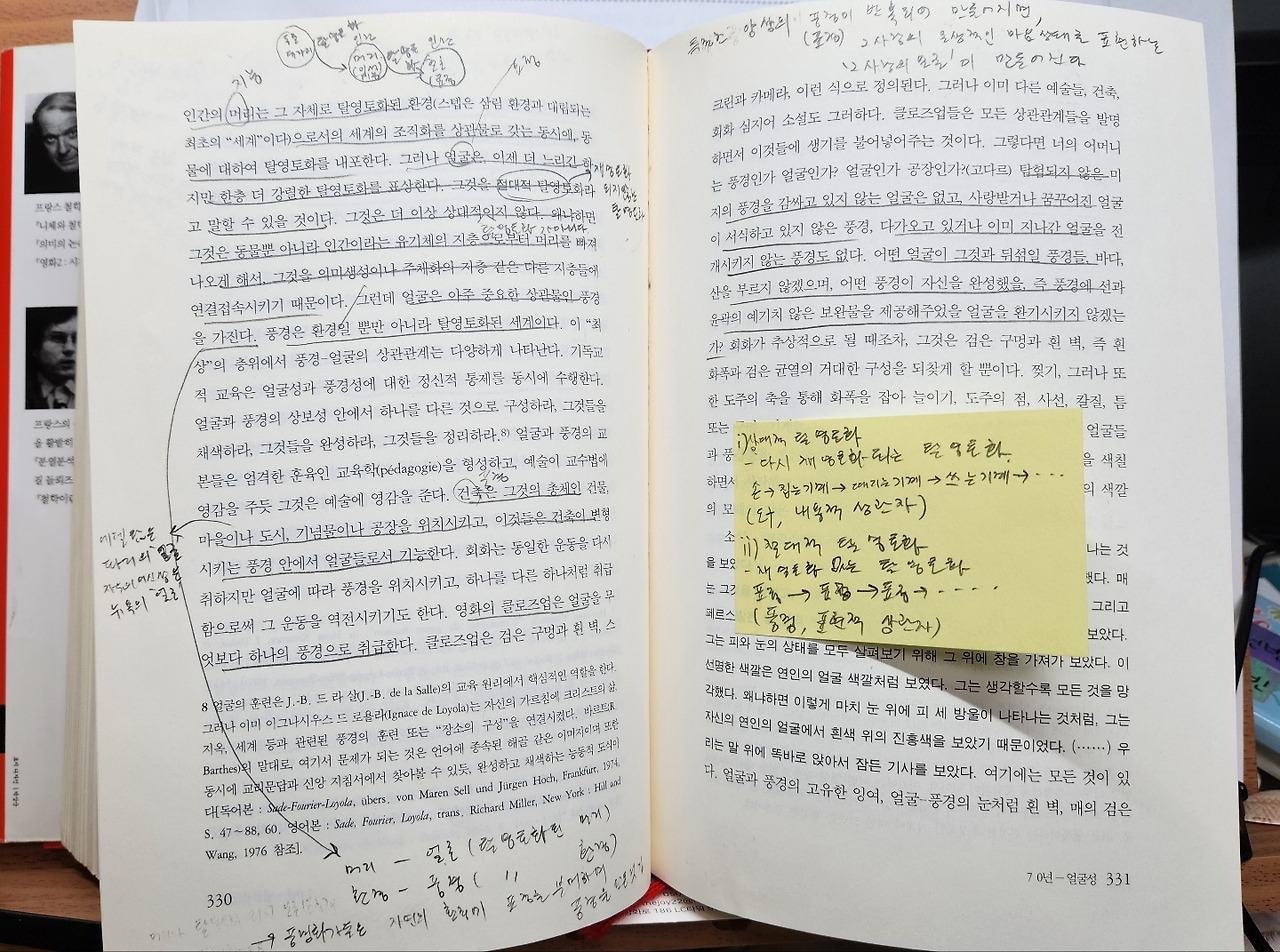 프랑스 철학
『니체와 철
『의미의 논
『영화2 : 시
프랑스의
인간의 머리는 그 자체로 탈영토화된 환경(스텝은 삼림 환경과 대립되는
최초의 “세계”이다)으로서의 세계의 조직화를 상관물로 갖는 동시에, 동
물에 대하여 탈영토화를 내포한다. 그러나 얼굴은, 이제 더 느리긴 하
지만 한층 더 강렬한 탈영토화를 표상한다. 그것을 절대적 탈영토화라
고 말할 수 있을 것이다. 그것은 더 이상 상대적이지 않다. 왜냐하면
그것은 동물뿐 아니라 인간이라는 유기체의 지층으로부터 머리를 빠져
나오게 해서, 그것을 의미생성이나 주체화의 지층 같은 다른 지층들에
연결접속시키기 때문이다. 그런데 얼굴은 아주 중요한 상관물인 풍경
을 가진다. 풍경은 환경일 뿐만 아니라 탈영토화된 세계이다. 이 “최
상”의 층위에서 풍경-얼굴의 상관관계는 다양하게 나타난다. 기독교
적 교육은 얼굴성과 풍경성에 대한 정신적 통제를 동시에 수행한다.
얼굴과 풍경의 상보성 안에서 하나를 다른 것으로 구성하라, 그것들을
채색하라, 그것들을 완성하라, 그것들을 정리하라.8) 얼굴과 풍경의 교
본들은 엄격한 훈육인 교육학(pédagogie)을 형성하고, 예술이 교수법에
영감을 주듯 그것은 예술에 영감을 준다. 건축은 그것의 총체인 건물,
마을이나 도시, 기념물이나 공장을 위치시키고, 이것들은 건축이 변형
시키는 풍경 안에서 얼굴들로서 기능한다. 회화는 동일한 운동을 다시
취하지만 얼굴에 따라 풍경을 위치시키고, 하나를 다른 하나처럼 취급
함으로써 그 운동을 역전시키기도 한다. 영화의 클로즈업은 얼굴을 무
엇보다 하나의 풍경으로 취급한다. 클로즈업은 검은 구멍과 흰 벽, 스
8 얼굴의 훈련은 J.-B. 드 라 살(J. -B. de la Salle)의 교육 원리에서 핵심적인 역할을 한다.
그러나 이미 이그나시우스 드 로욜라(Ignace de Loyola)는 자신의 가르침에 크리스트의 삶,
지옥, 세계 등과 관련된 풍경의 훈련 또는 “장소의 구성”을 연결시켰다. 바르트(R.
Barthes)의 말대로, 여기서 문제가 되는 것은 언어에 종속된 해골 같은 이미지이며 또한
동시에 교리문답과 신앙 지침서에서 찾아볼 수 있듯, 완성하고 채색하는 능동적 도식이
다[독어본 : Sade-Fourier-Loyola, übers. von Maren Sell und Jürgen Hoch, Frankfurt, 1974,
S. 47~88, 60. 영어본 : Sade, Fourier, Loyola, trans. Richard Miller, New York : Hill and
Wang, 1976 참조].
머리 - 얼굴 (탈영토화된 머리)
환경 - 풍경 ( 〃 환경)
330
크린과 카메라, 이런 식으로 정의된다. 그러나 이미 다른 예술들, 건축,
회화 심지어 소설도 그러하다. 클로즈업들은 모든 상관관계들을 발명
하면서 이것들에 생기를 불어넣어주는 것이다. 그렇다면 너의 어머니
는 풍경인가 얼굴인가? 얼굴인가 공장인가?(고다르) 탐험되지 않은 미
지의 풍경을 감싸고 있지 않는 얼굴은 없고, 사랑받거나 꿈꾸어진 얼굴
이 서식하고 있지 않은 풍경, 다가오고 있거나 이미 지나간 얼굴을 전
개시키지 않는 풍경도 없다. 어떤 얼굴이 그것과 뒤섞일 풍경들, 바다,
산을 부르지 않겠으며, 어떤 풍경이 자신을 완성했을, 즉 풍경에 선과
윤곽의 예기치 않은 보완물을 제공해주었을 얼굴을 환기시키지 않겠는
가? 회화가 추상적으로 될 때조차, 그것은 검은 구멍과 흰 벽, 즉 흰
화폭과 검은 균열의 거대한 구성을 되찾게 할 뿐이다. 찢기, 그러나 또
한 도주의 축을 통해 화폭을 잡아 늘이기, 도주의 점, 사선, 칼질, 틈
또는 얼굴들
을 색칠
의 색깔
i) 상대적 탈영토화
- 다시 재영토화 되는 탈영토화.
손→집는기계→때리는기계→쓰는기계→····
(도구, 내용적 상관자)
ii) 절대적 탈영토화
- 재영토화 없는 탈영토화
표정→표정→표정→·····
(풍경, 표현적 상관자)
나는 것
했다. 매
그리고
페르스 보았다.
그는 피와 눈의 상태를 모두 살펴보기 위해 그 위에 창을 가져가 보았다. 이
선명한 색깔은 연인의 얼굴 색깔처럼 보였다. 그는 생각할수록 모든 것을 망
각했다. 왜냐하면 이렇게 마치 눈 위에 피 세 방울이 나타나는 것처럼, 그는
자신의 연인의 얼굴에서 흰색 위의 진홍색을 보았기 때문이었다. (……) 우
리는 말 위에 똑바로 앉아서 잠든 기사를 보았다. 여기에는 모든 것이 있
다. 얼굴과 풍경의 고유한 잉여, 얼굴-풍경의 눈처럼 흰 벽, 매의 검은
7 0년－얼굴성 331